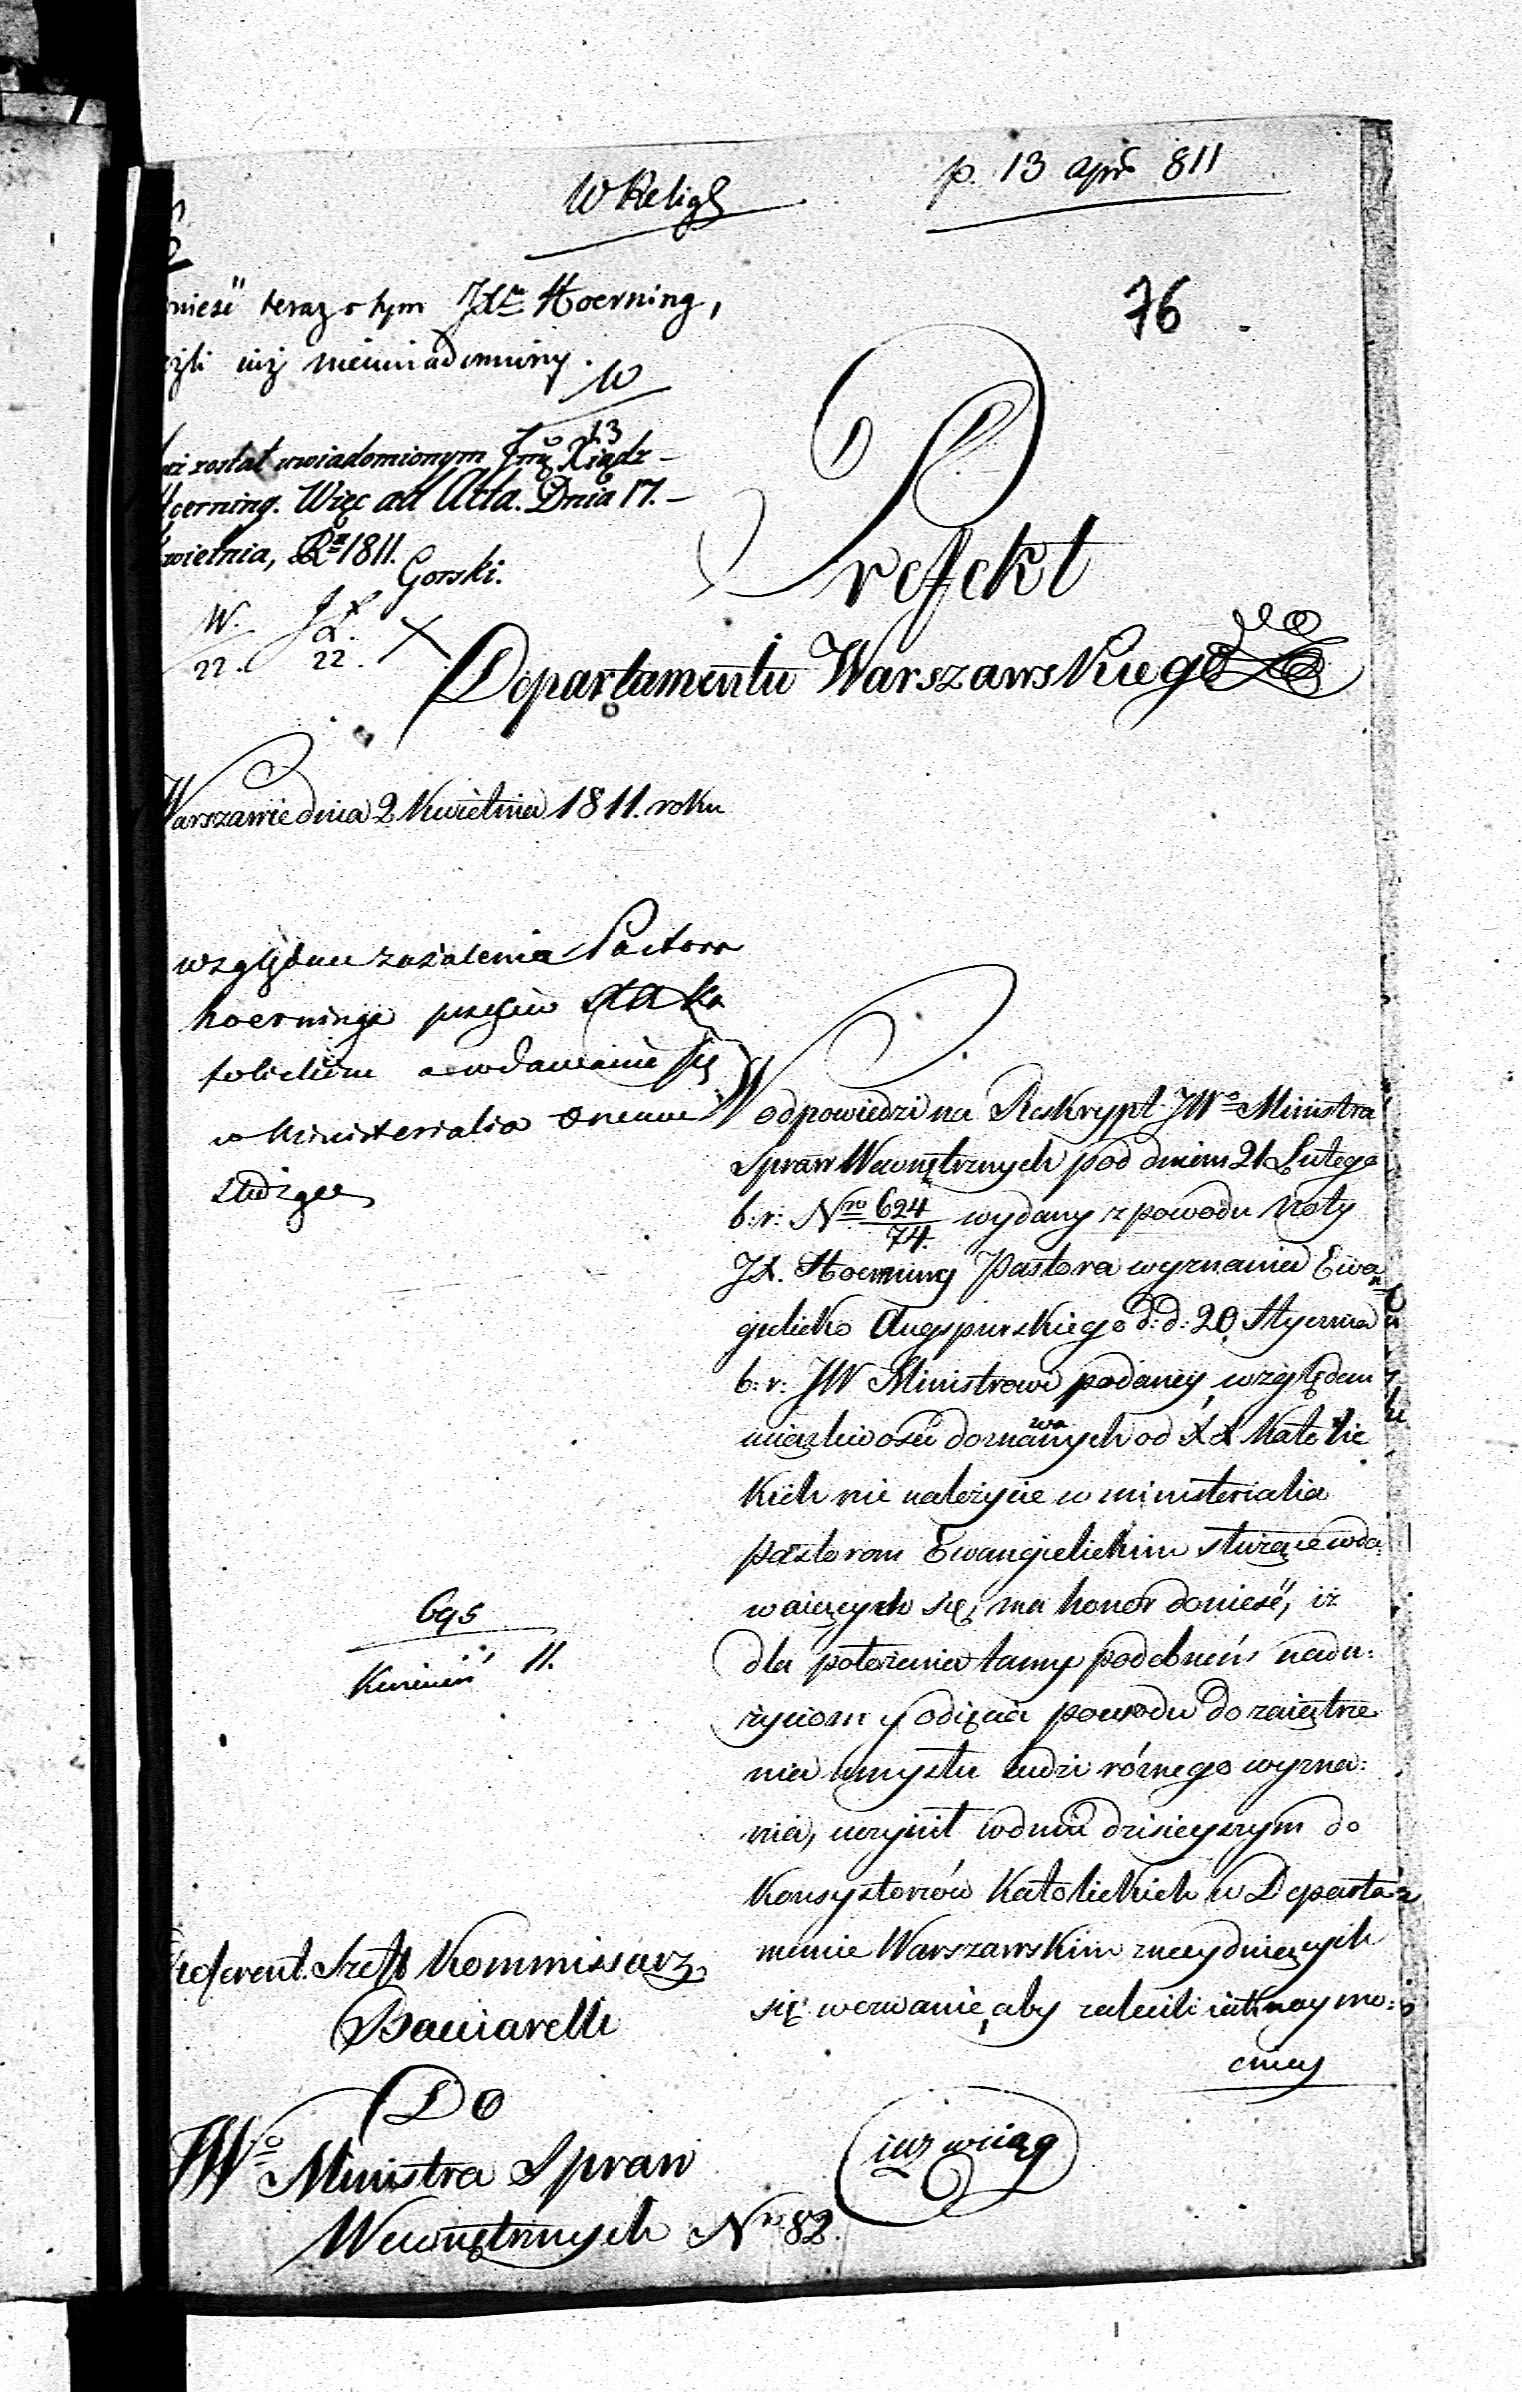 W Relig
p. 13 apr 811
76
onieść teraz o tym JXu Hoerning,
eżli iuż nieuwiadomiony.
W
13
uż został uwiadomionym Jmć Xiądz
Hoerning. Więc ad Acta. Dnia 17.
Kwietnia, R 1811.
Gorski.
W. 22.
22.
Prefekt
Departamentu Warszawskiego
Warszawie dnia 2 Kwietnia 1811. roku
względem zażalenia Pastora
hoerninga przeciw XX Ka
tolickim o wdawanie się
w Ministerialia onemu
służące
W odpowiedzi na Reskrypt JWo Ministra
Spraw Wewnętrznych pod dniem 21 Lutego
b: r: Nro 624/74. wydany z powodu Noty
JX. Hoerning Pastora wyznania Ewan
gielicko Augspurskiego d: d: 20 Stycznia
b: r: JW Ministrowi podaney, względem
uciążliwości doznawanych od XX Katolic
kich nie należycie w ministerialia
pastorom Ewangielickim służące wda:
waiących się, ma honor donieść, iż
dla położenia tamy podobnem nadu:
życiom y odięcia powodu do zaiątrze
nia umysłu ludzi różnego wyzna:
nia, uczynił w dniu dzisieyszym do
Konsystorzów Katolickich w Departa
mencie Warszawskim znayduiących
się wezwanie, aby zalecili iak naymo:
cniey
695
Kwiecień 11.
Referent. Szeff Kommissarz
Bacciarelli
Do
JWo Ministra Spraw
Wewnętrznych Nro 82.
iuż wciąg